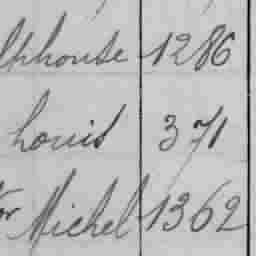 Alphonse 1286
Louis 371
or Michel 1362